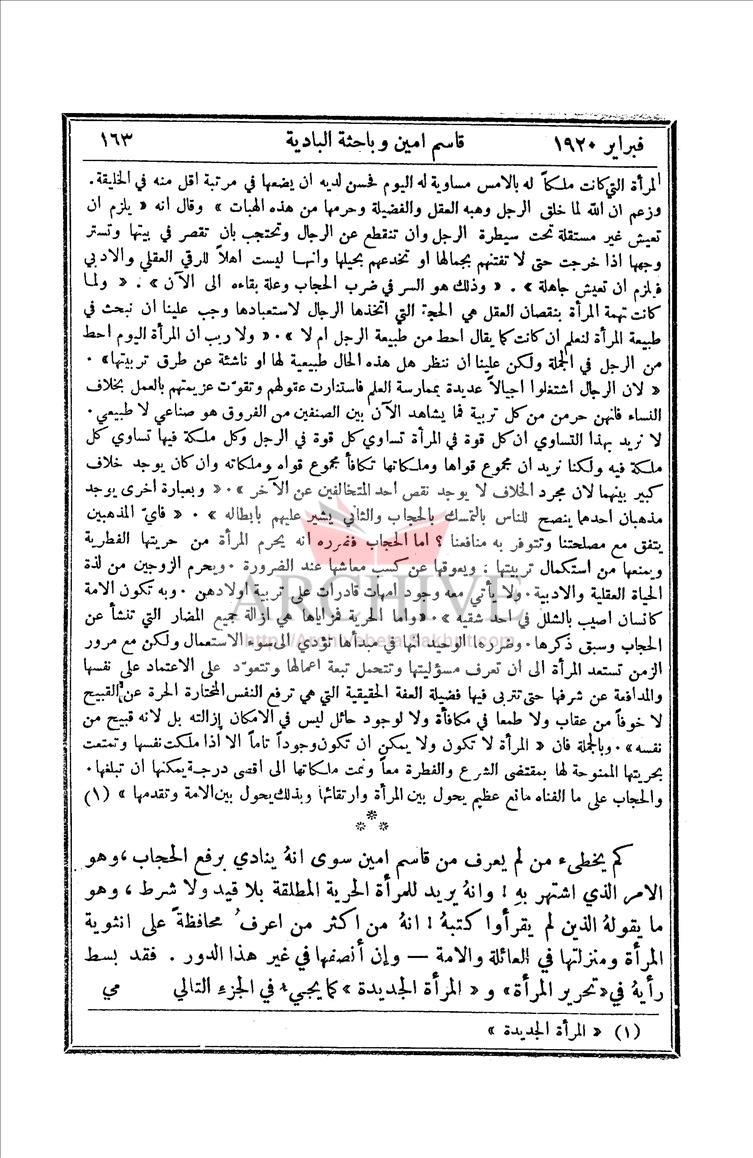 فبراير ١٩٢٠ قاسم امين وباحثة البادية ١٦٣
المرأة التي كانت ملكاً له بالامس مساوية له اليوم فحسن لديه ان يضعها في مرتبة اقل منه في الخليقة.
وزعم ان الله لما خلق الرجل وهبه العقل والفضيلة وحرمها من هذه الهبات » وقال انه « يلزم ان
تعيش غير مستقلة تحت سيطرة الرجل وان تنقطع عن الرجال وتحتجب بان تقصر في بيتها وتستر
وجهها اذا خرجت حتى لا تفتنهم بجمالها او تخدعهم بحيلها وانها ليست اهلاً للرقي العقلي والادبي
فيلزم ان تعيش جاهلة » . « وذلك هو السر في ضرب الحجاب وعلة بقاءه الى الآن » . « ولما
كانت تهمة المرأة بنقصان العقل هي الحجة التي اتخذها الرجال لاستعبادها وجب علينا ان نبحث في
طبيعة المرأة لنعلم ان كانت كما يقال احط من طبيعة الرجل ام لا » . « ولا ريب ان المرأة اليوم احط
من الرجل في الجملة ولكن علينا ان ننظر هل هذه الحال طبيعية لها او ناشئة عن طرق تربيتها » .
« لان الرجال اشتغلوا اجيالاً عديدة بممارسة العلم فاستنارت عقولهم وتقوّت عزيمتهم بالعمل بخلاف
النساء فانهن حرمن من كل تربية فما يشاهد الآن بين الصنفين من الفروق هو صناعي لا طبيعي .
لا نريد بهذا التساوي ان كل قوة في المرأة تساوي كل قوة في الرجل وكل ملكة فيها تساوي كل
ملكة فيه ولكنا نريد ان مجموع قواها وملكاتها تكافأ مجموع قواه وملكاته وان كان يوجد خلاف
كبير بينهما لان مجرد الخلاف لا يوجد نقص احد المتخالفين عن الآخر » . « وبعبارة اخرى يوجد
مذهبان احدهما ينصح للناس بالتمسك بالحجاب والثاني يشير عليهم بابطاله » . « فايّ المذهبين
يتفق مع مصلحتنا وتتوفر به منافعنا ؟ اما الحجاب فضرره انه يحرم المرأة من حريتها الفطرية
ويمنعها من استكمال تربيتها ; ويعوقها عن كسب معاشها عند الضرورة . ويحرم الزوجين من لذة
الحياة العقلية والادبية . ولا يأتي معه وجود امهات قادرات على تربية اولادهن . وبه تكون الامة
كانسان اصيب بالشلل في احد شقيه » . « واما الحرية فمزاياها هي ازالة جميع المضار التي تنشأ عن
الحجاب وسبق ذكرها . وضررها الوحيد انها في مبدأها تؤدي الى سوء الاستعمال ولكن مع مرور
الزمن تستعد المرأة الى ان تعرف مسؤليتها وتتحمل تبعة اعمالها وتتعوّد على الاعتماد على نفسها
والمدافعة عن شرفها حتى تتربى فيها فضيلة العفة الحقيقية التي هي ترفع النفس المختارة الحرة عن القبيح
لا خوفاً من عقاب ولا طمعا في مكافأة ولا لوجود حائل ليس في الامكان إزالته بل لانه قبيح من
نفسه » . وبالجملة فان « المرأة لا تكون ولا يمكن ان تكون وجوداً تاماً الا اذا ملكت نفسها وتمتعت
بحريتها الممنوحة لها بمقتضى الشرع والفطرة معاً ونمت ملكاتها الى اقصى درجة يمكنها ان تبلغها .
والحجاب على ما الفناه مانع عظيم يحول بين المرأة وارتقائها وبذلك يحول بين الامة وتقدمها » (١)
***
كم يخطىء من لم يعرف من قاسم امين سوى انهُ ينادي برفع الحجاب ، وهو
الامر الذي اشتهر بهِ ! وانهُ يريد للمرأة الحرية المطلقة بلا قيد ولا شرط ، وهو
ما يقولهُ الذين لم يقرأوا كتبهُ ! انهُ من اكثر من اعرفُ محافظةً على انثوية
المرأة ومنزلتها في العائلة والامة — وإن أنصفها في غير هذا الدور . فقد بسط
رأيهُ في « تحرير المرأة » و « المرأة الجديدة » كما يجيءُ في الجزء التالي مي
(١) « المرأة الجديدة »
ARCHIVE
http://Archivebeta.Sakhrit.com